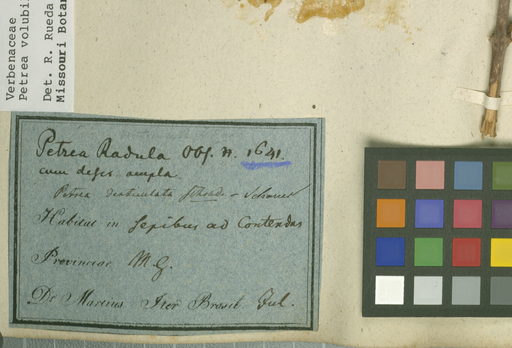 Verbenaceae
Petrea volubi
Det. R. Rueda
Missouri Botan
Petrea Radula Obs. n. 1641.
cum descr. ampla
Petrea denticulata Schrad - Schauer
Habitat in Sepibus ad Contendas
Provinciae M G.
Dr Martius Iter Brasil Jul.